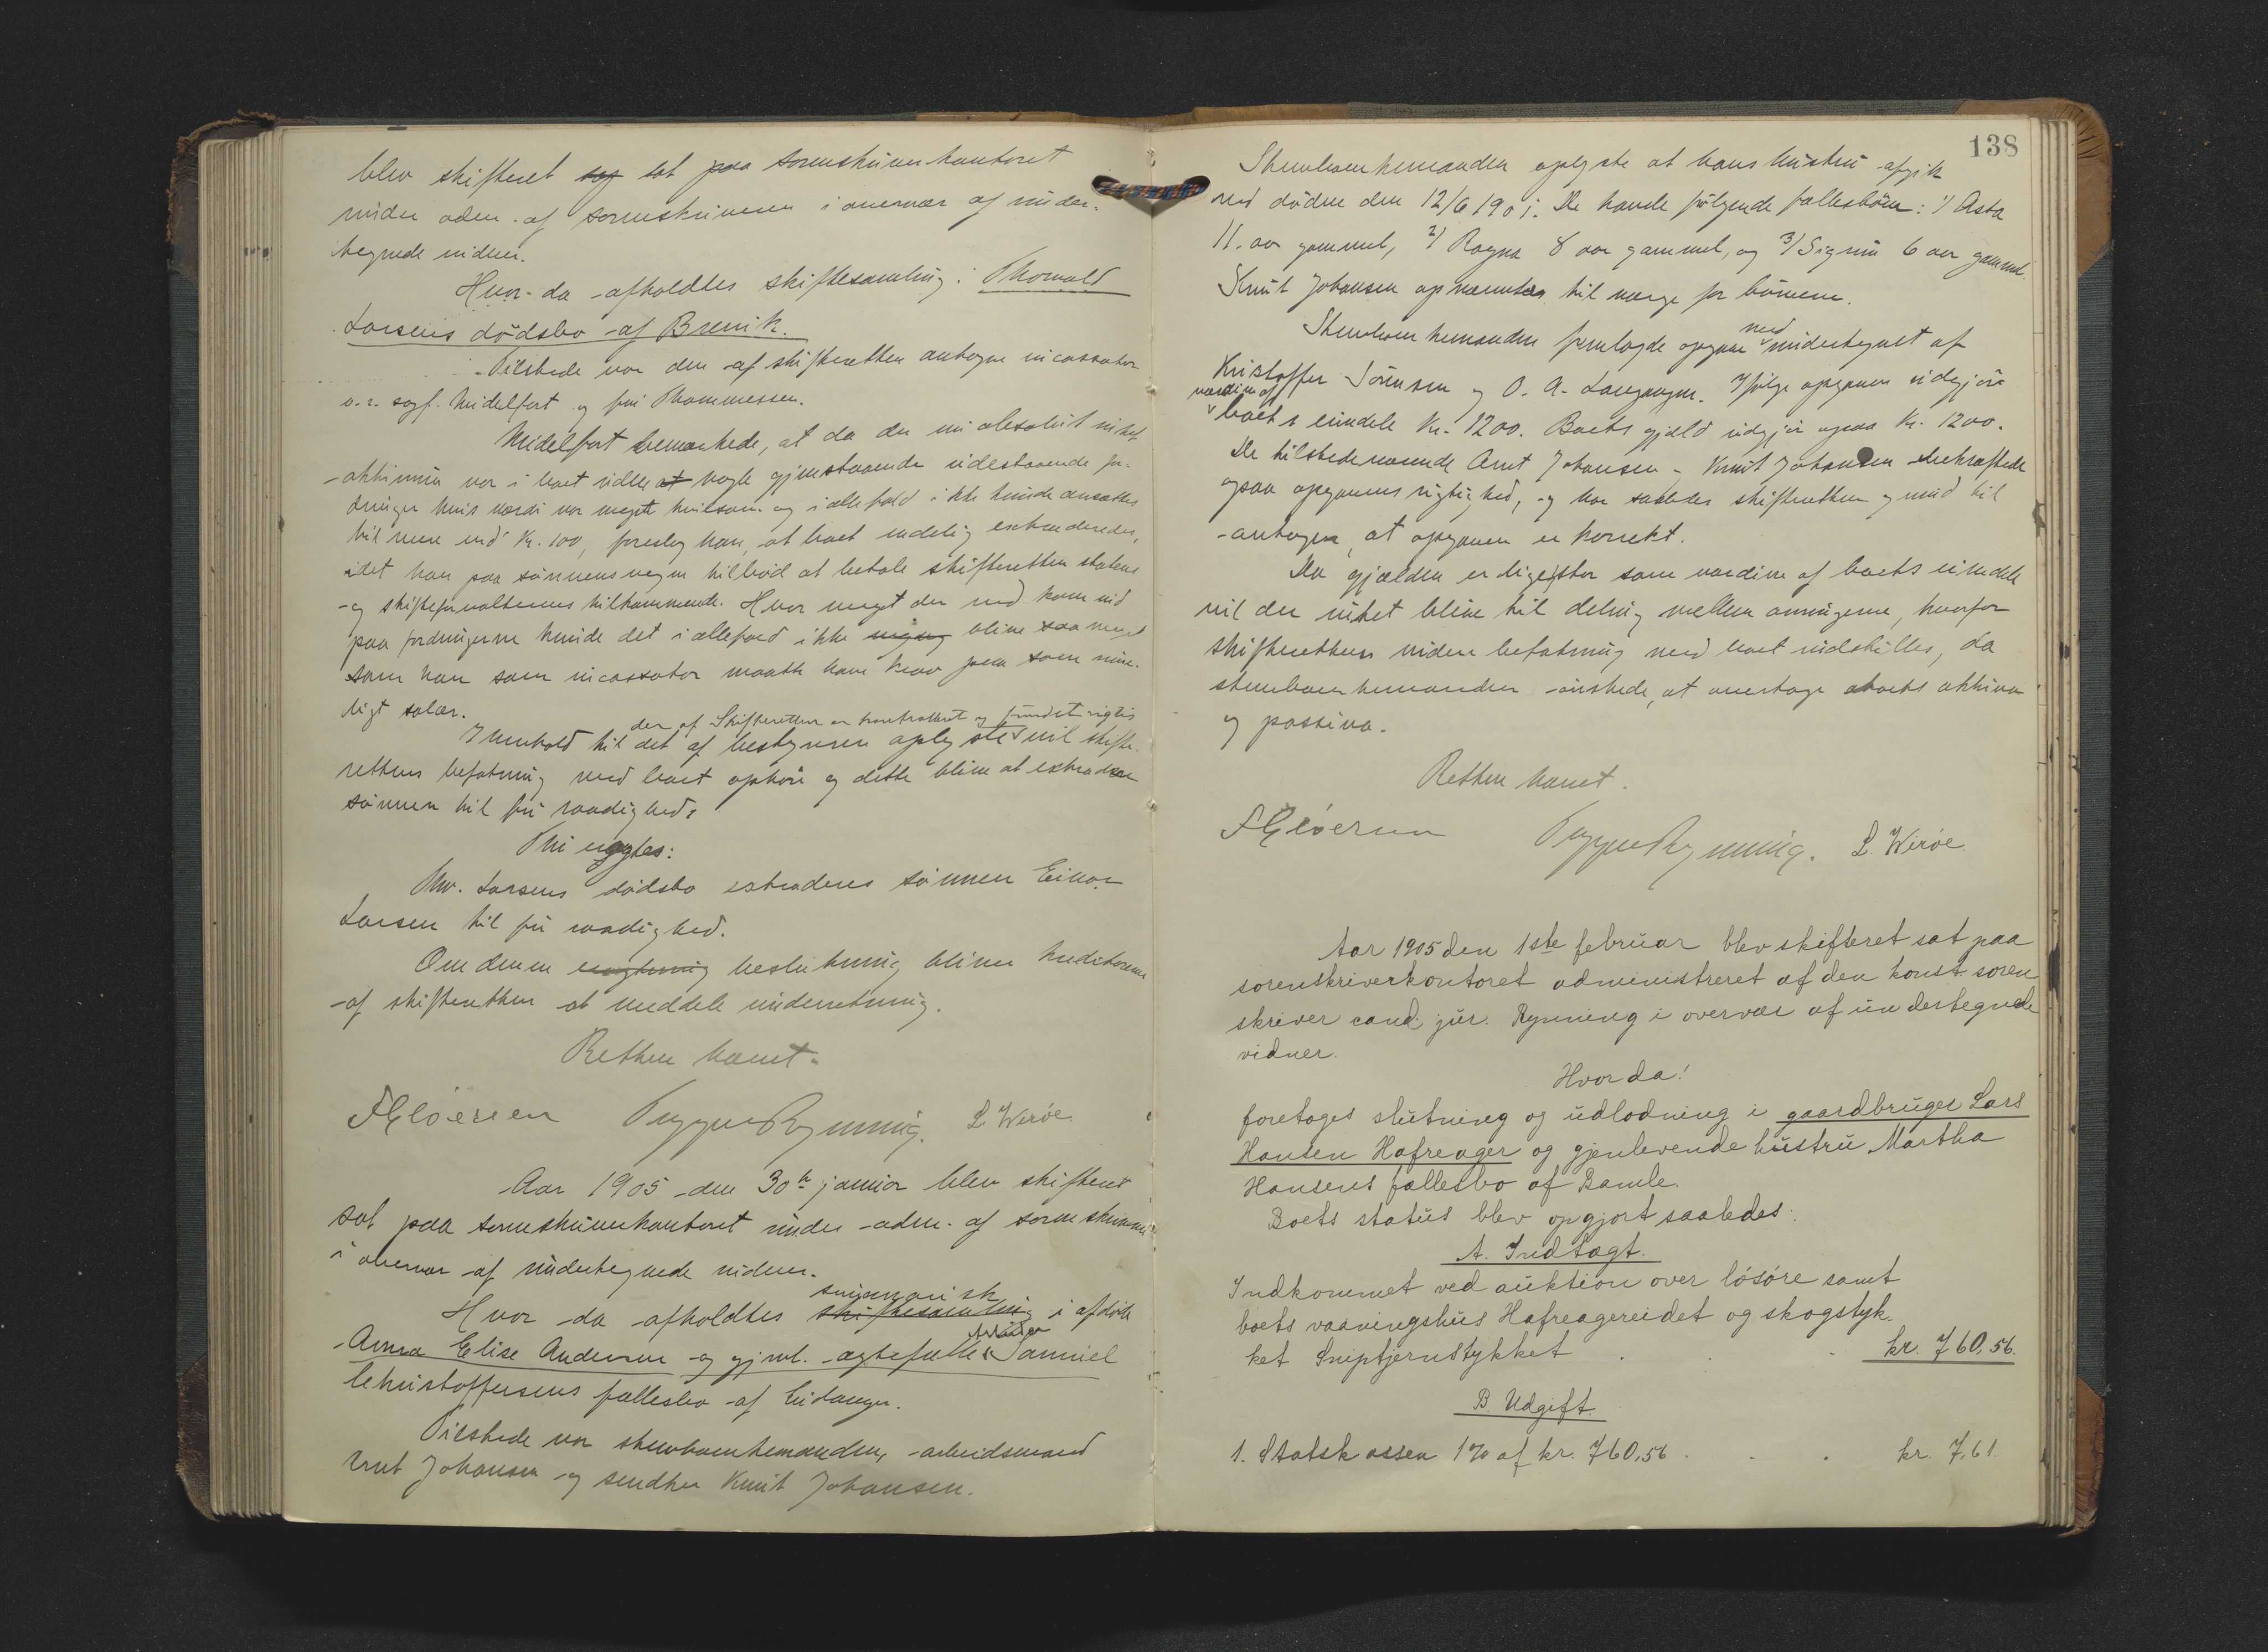 blev skifteret sat paa sorenskriverkontoret
under adm. af sorenskriveren i overvær af under-
tegnede vidner.
Hvor da afholdtes skiftesamling i Thorvald
Larsens dødsbo af Brevik.
Tilstede var den af skifteretten antagne incassator
o.r. sagf. Midelfart og frk Thommessen.
Midelfart bemærkede, at da der nu absolut intet
aktivum var i boet uden nogle gjenstaaende udestaaende for-
dringer hvis værdi var meget tvilsom og ialfald ikke kunde ansættes
til mere end Kr. 100, foreslog han, at boet endelig extraderedes,
idet han paa sønnens vegne tilbød at betale skifteretten statens
og skifteforvalterens tilkommende. Hvor meget der end kom ind
paa fordringerne kunde det i alfald ikke blive saa meget
som han som incassator maatte have krav paa som rime-
ligt salær.
der af Skifteretten er kontrolleret og fundet rigtig
I henhold til det af bestyreren oplyste vil skifte-
rettens befatning med boet ophøre og dette blive at extradere
sønnen til fri raadighed.
Thi eragtes:
Thv. Larsens dødsbo extraderes sønnen Einar
Larsen til fri raadighed.
Om denne beslutning bliver kreditorerne
af skifteretten at meddele underretning.
Retten hævet.
F Gløersen Trygve Rynning. L. Wirøe
Aar 1905 den 30te januar blev skifteret
sat paa sorenskriverkontoret under adm. af sorenskriveren
i overvær af undertegnede vidner.
summarisk
Hvor da afholdtes skiftesamling i afdøde
Anna Elise Andersen og gjenl. ægtefælle Samuel
Christoffersens fællesbo af Eidanger.
Tilstede var stervboenkemanden, arbeidsmand
Arnt Johansen og snedker Knut Johansen.
138
Stervboenkemanden oplyste at hans hustru afgik
ved døden den 12/6 1901. De havde følgende fællesbørn: 1) Asta
11 aar gammel, 2) Ragna 8 aar gammel, og 3) Sigrun 6 aar gammel.
Knut Johansen opnævntes til værge for børnene.
med
Stervboenkemanden fremlagde opgave undertegnet af
Kristoffer Sørensen og O. A. Langangen. Ifølge opgaven udgjør
værdien af
boets eiendele Kr. 1200. Boets gjæld udgjør ogsaa Kr. 1200.
De tilstedeværende Arnt Johansen - Knut Johansen bekræftede
ogsaa opgavens rigtighed, og har saaledes skifteretten grund til
antagen, at opgaven er korrekt.
Da gjælden er ligesaa stor som værdien af boets eiendele
vil der intet blive til deling mellem arvingerne, hvorfor
skifteretten uden befatning med boet udskilles, da
stervboenkemanden ønskede, at overtage boets aktiva
og passiva.
Retten hævet.
F Gløersen Trygve Rynning. L. Wirøe
Aar 1905 den 1ste februar blev skifteret sat paa
sorenskriverkontoret administreret af den konst. soren
skriver cand. jur. Rynning i overvær af undertegnede
vidner.
Hvor da!
foretoges slutning og udlodning i gaardbruger Lars
Hansen Hafreager og gjenlevende hustru Martha
Hansens fællesbo af Bamle.
Boets status blev opgjort saaledes:
A. Indtægt.
Indkommet ved auktion over løsøre samt
boets vaaningshus Hafreagereidet og skogstyk-
ket Sniptjernstykket . . . kr. 760,56.
B. Udgift.
1. Statskassen 1% af kr. 760,56 . . . kr. 7,61